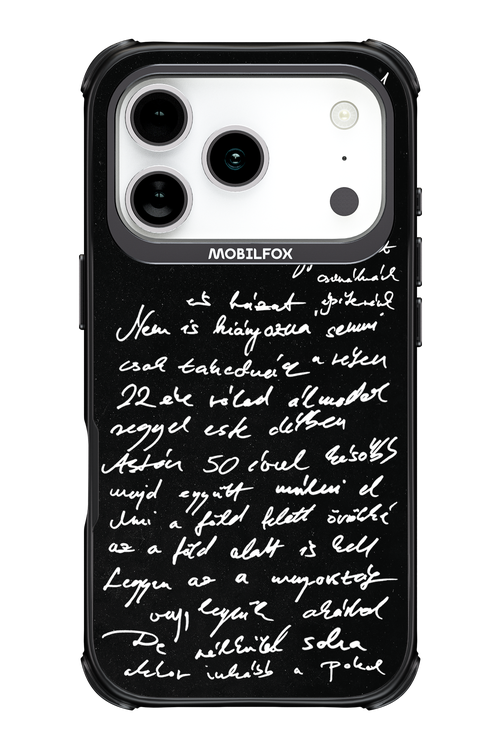 MOBILFOX
és házat építenék
Nem is hiányozna semmi
csak takednék a réten
22 éve rólad álmodok
reggel este délben
Aztán 50 évvel később
majd együtt múlni el
Ami a föld felett örökké
az a föld alatt is kell
Legyen az a mennyország
vagy legyünk akárhol
De nélküled soha
akkor inkább a pokol